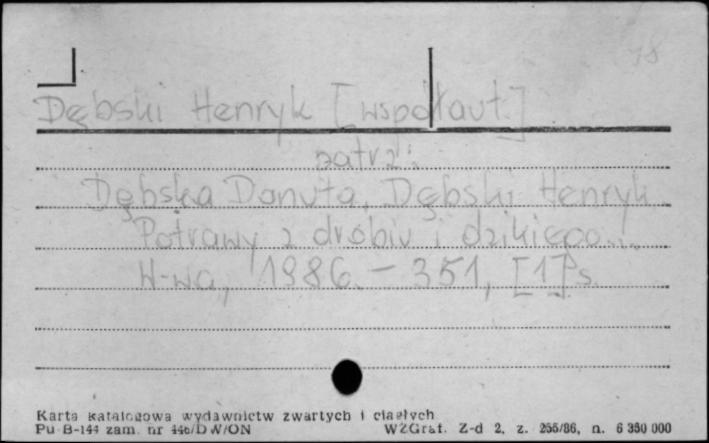 18
Dębski Henryk [współaut.]
zatrz:
Dębska Danuta, Dębski Henryk.
Potrawy z drobiu i dzikiego...
W-wa, 1986. - 351, [1] s.
Karta katalogowa wydawnictw zwartych i ciągłych
Pu-B-144 zam. nr 44c/DW/ON WZGraf. Z-d 2, z. 255/86, n. 6 350 000